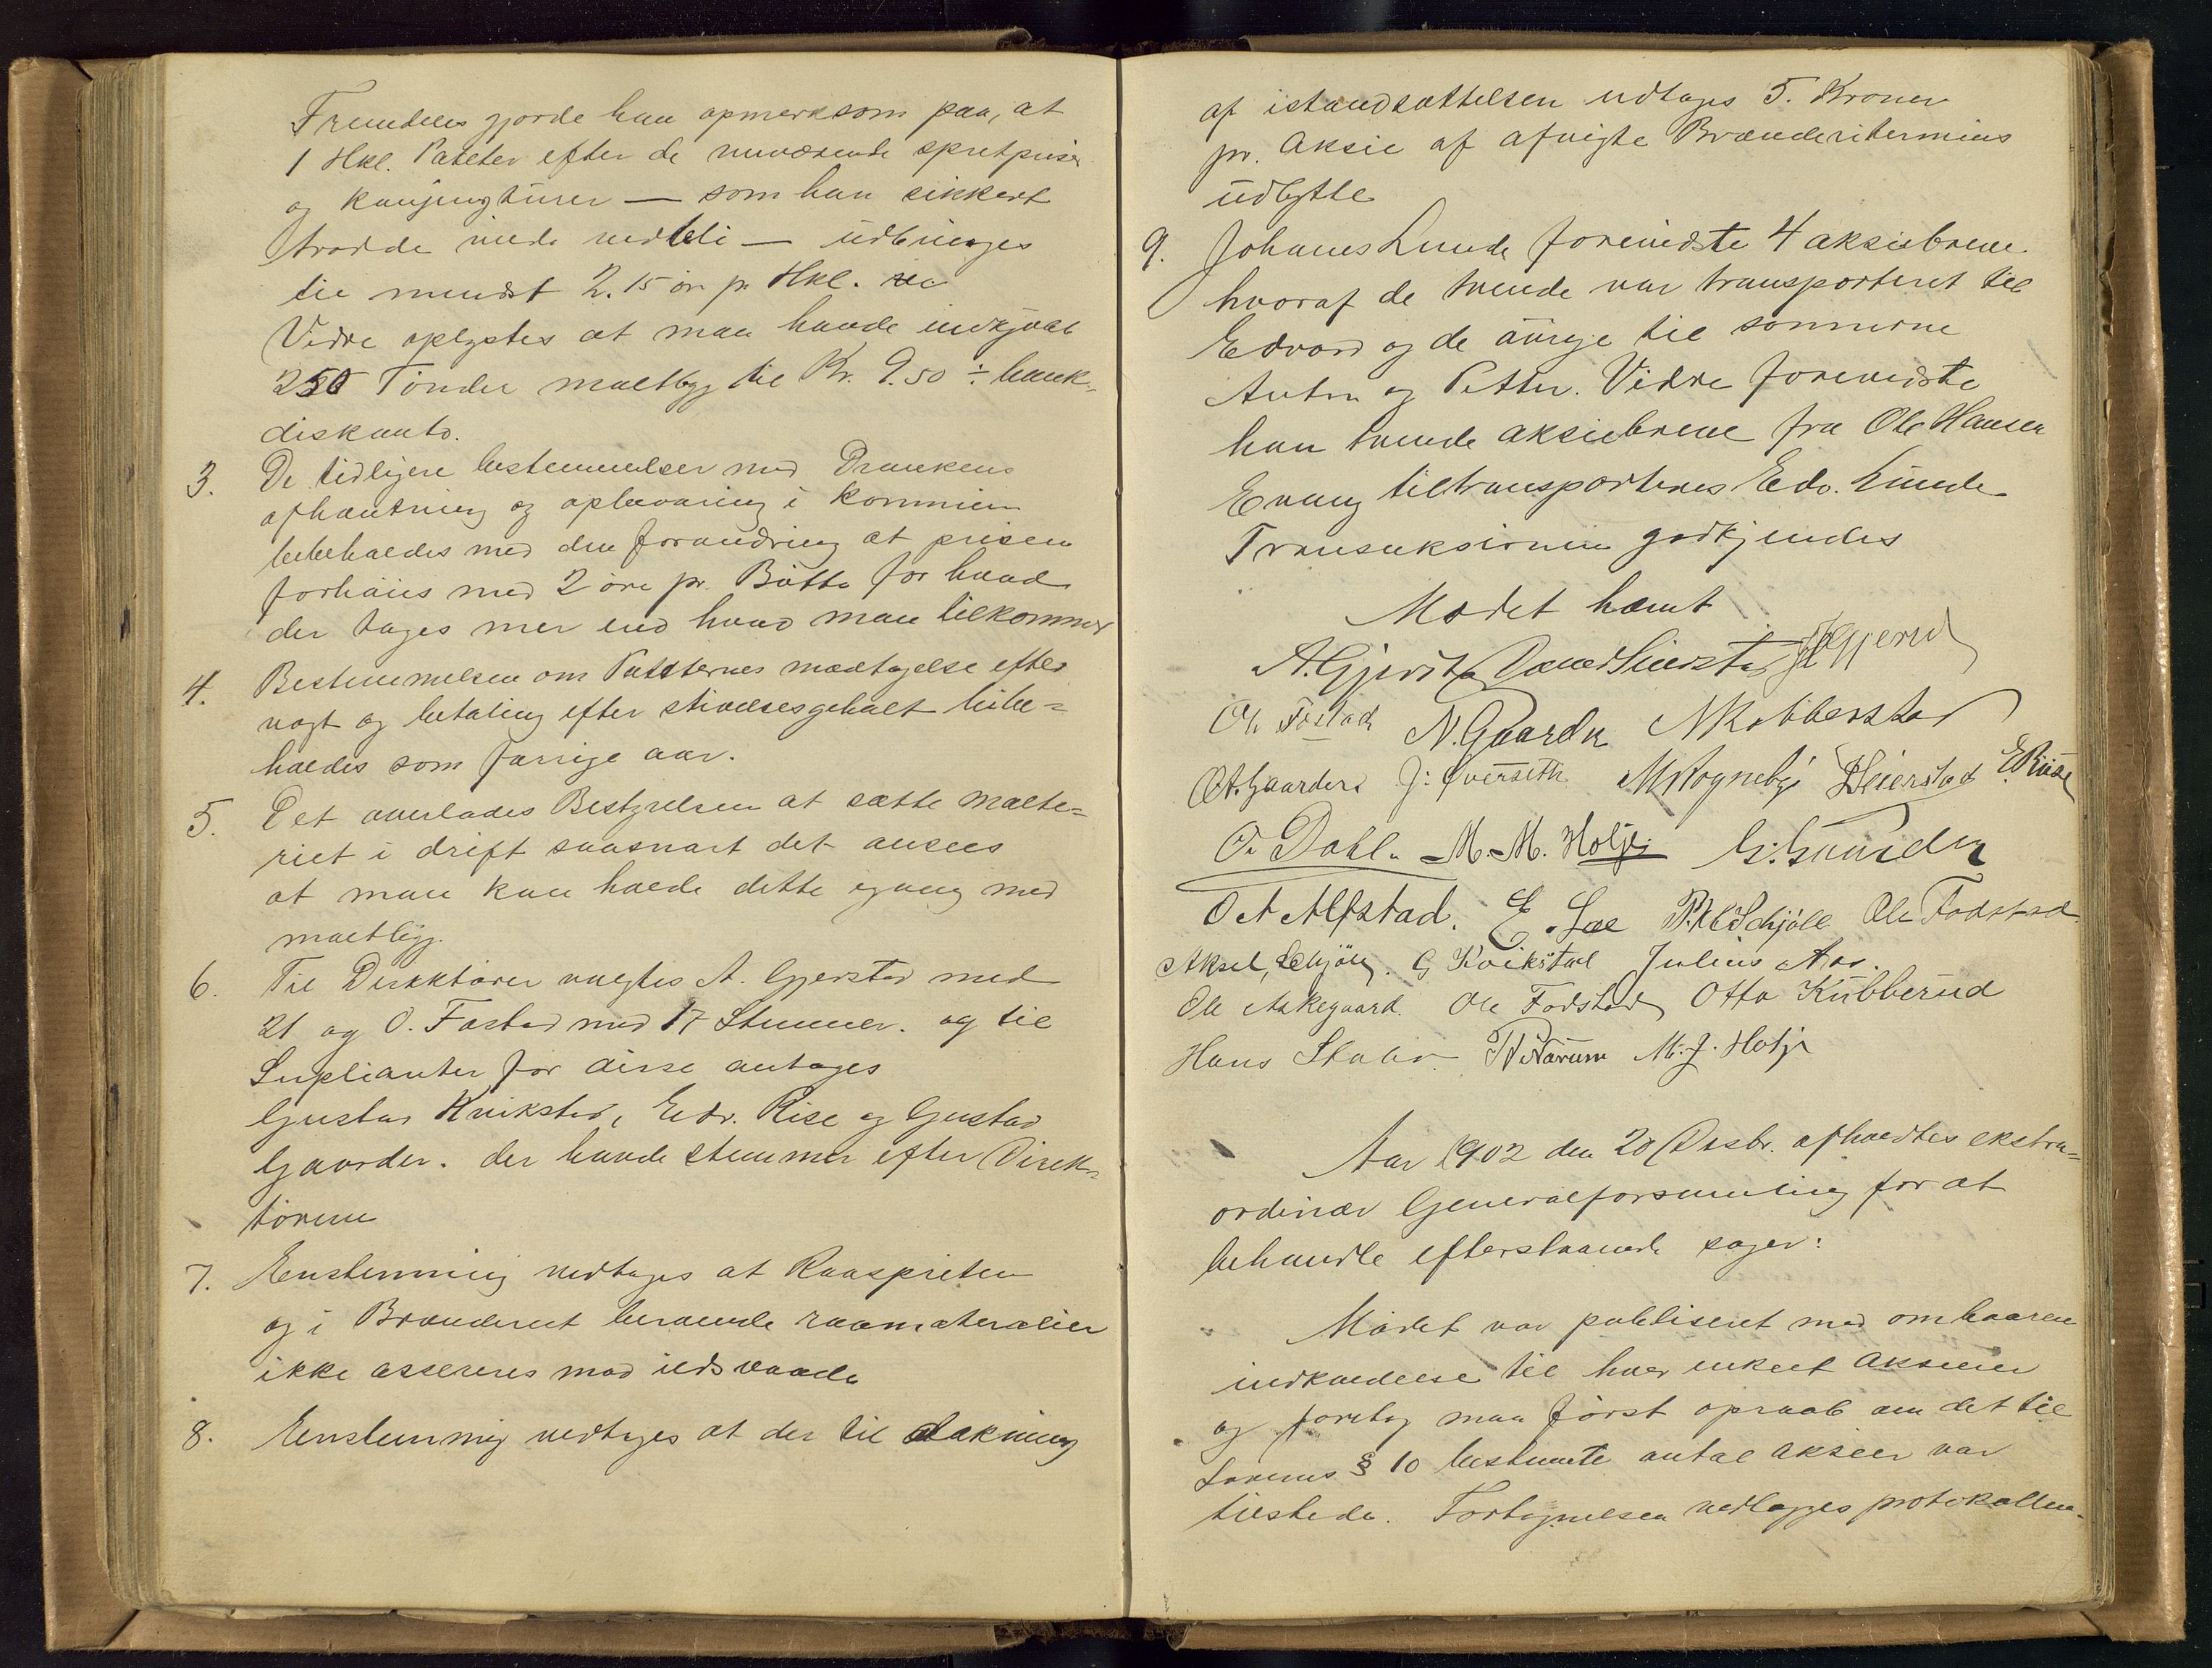 Fremdeles gjorde han opmerksom paa, at
1 Hkl. Poteter efter de nuværende spritpriser
og konjungturer — som han sikkert
trodde vilde vedbli — udbringes
til mindst 2.15 ör pr Hkl.
Vidre oplystes at man havde indkjøbt
250 Tönder maltbyg til Kr. 9.50 ÷ bank-
diskonto.
3. De tidligere bestemmelser med Drankens
afhentning og opbevaring i kommun
bibeholdes med den forandring at prisen
forhöies med 2 öre pr. Bötte for hvad
der tages mer end hvad man tilkommer
4. Bestemmelsen om Poteternes modtagelse efter
vægt og betaling efter stivelsesgehalt bibe=
holdes som forrige aar.
5. Det overlades Bestyrelsen at sætte malte=
riet i drift saasnart det ansees
at man kan holde dette igang med
maltbyg.
6. Til Direktörer valgtes A. Gjerstad med
21 og O. Fostad med 17 Stemmer. og til
Suplianter for disse antages
Gustav Kvikstad, Edv. Rise og Gustav
Gaarder. der havde stemmer efter Direk=
törerne
7. Enstemmig vedtages at Raaspriten
og i Brænderiet beroende raamaterialier
ikke assereres mod ildsvaade
8. Enstemmig vedtages at der til dækning
af istandsættelsen udtages 5. Kroner
pr. Aksie af afvigte Brænderitermins
udbytte
9. Johannes Lunde foreviste 4 aksiebreve
hvoraf de tvende var transporteret til
Edvard og de övrige til sönnerne
Anton og Petter. Vidre foreviste
han tvende aksiebreve fra Ole Hansen
Evang tiltransporteres Edv. Lunde
Transaksionen godkjendes
Mødet hævet
A. Gjerstad
Ole Fostad N. Gaarder N Kobberstad
O. A. Gaarder J. Øverseth M Rognebye Heierstad E. Rise
O. Dahl. M. M. Holje G. Gaarder
O A Alfstad. E. Loe P. Kl Schjöll Ole Fodstad
Aksel Schjöll. G Kvikstad Julius Aas.
Ole Aakegaard. Ole Fodstad Otto Kübberud
Hans Stabo M. J. Holje
Aar 1902 den 20 Desbr. afholdtes ekstra=
ordinær Generalforsamling for at
behandle efterstaaende sager:
Mödet var publiseret med ombaaren
indkaldelse til hver enkelt Aksieeier
og foretog man först opraab om det til
Lovenes § 10 bestemte antal Aksier var
tilstede. Fortegnelsen vedlægges protokollen.